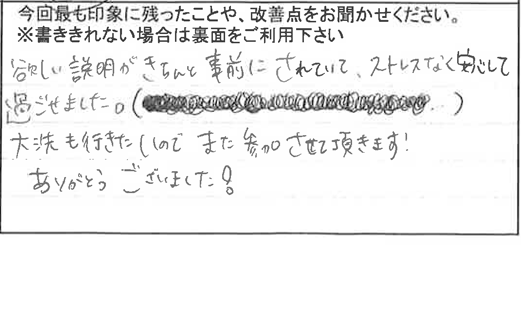 今回最も印象に残ったことや、改善点をお聞かせください。
※書ききれない場合は裏面をご利用下さい
欲しい説明がきちんと事前にされていて、ストレスなく安心して
過ごせました。(　　　)
大洗も行きたいのでまた参加させて頂きます!
ありがとうございました!